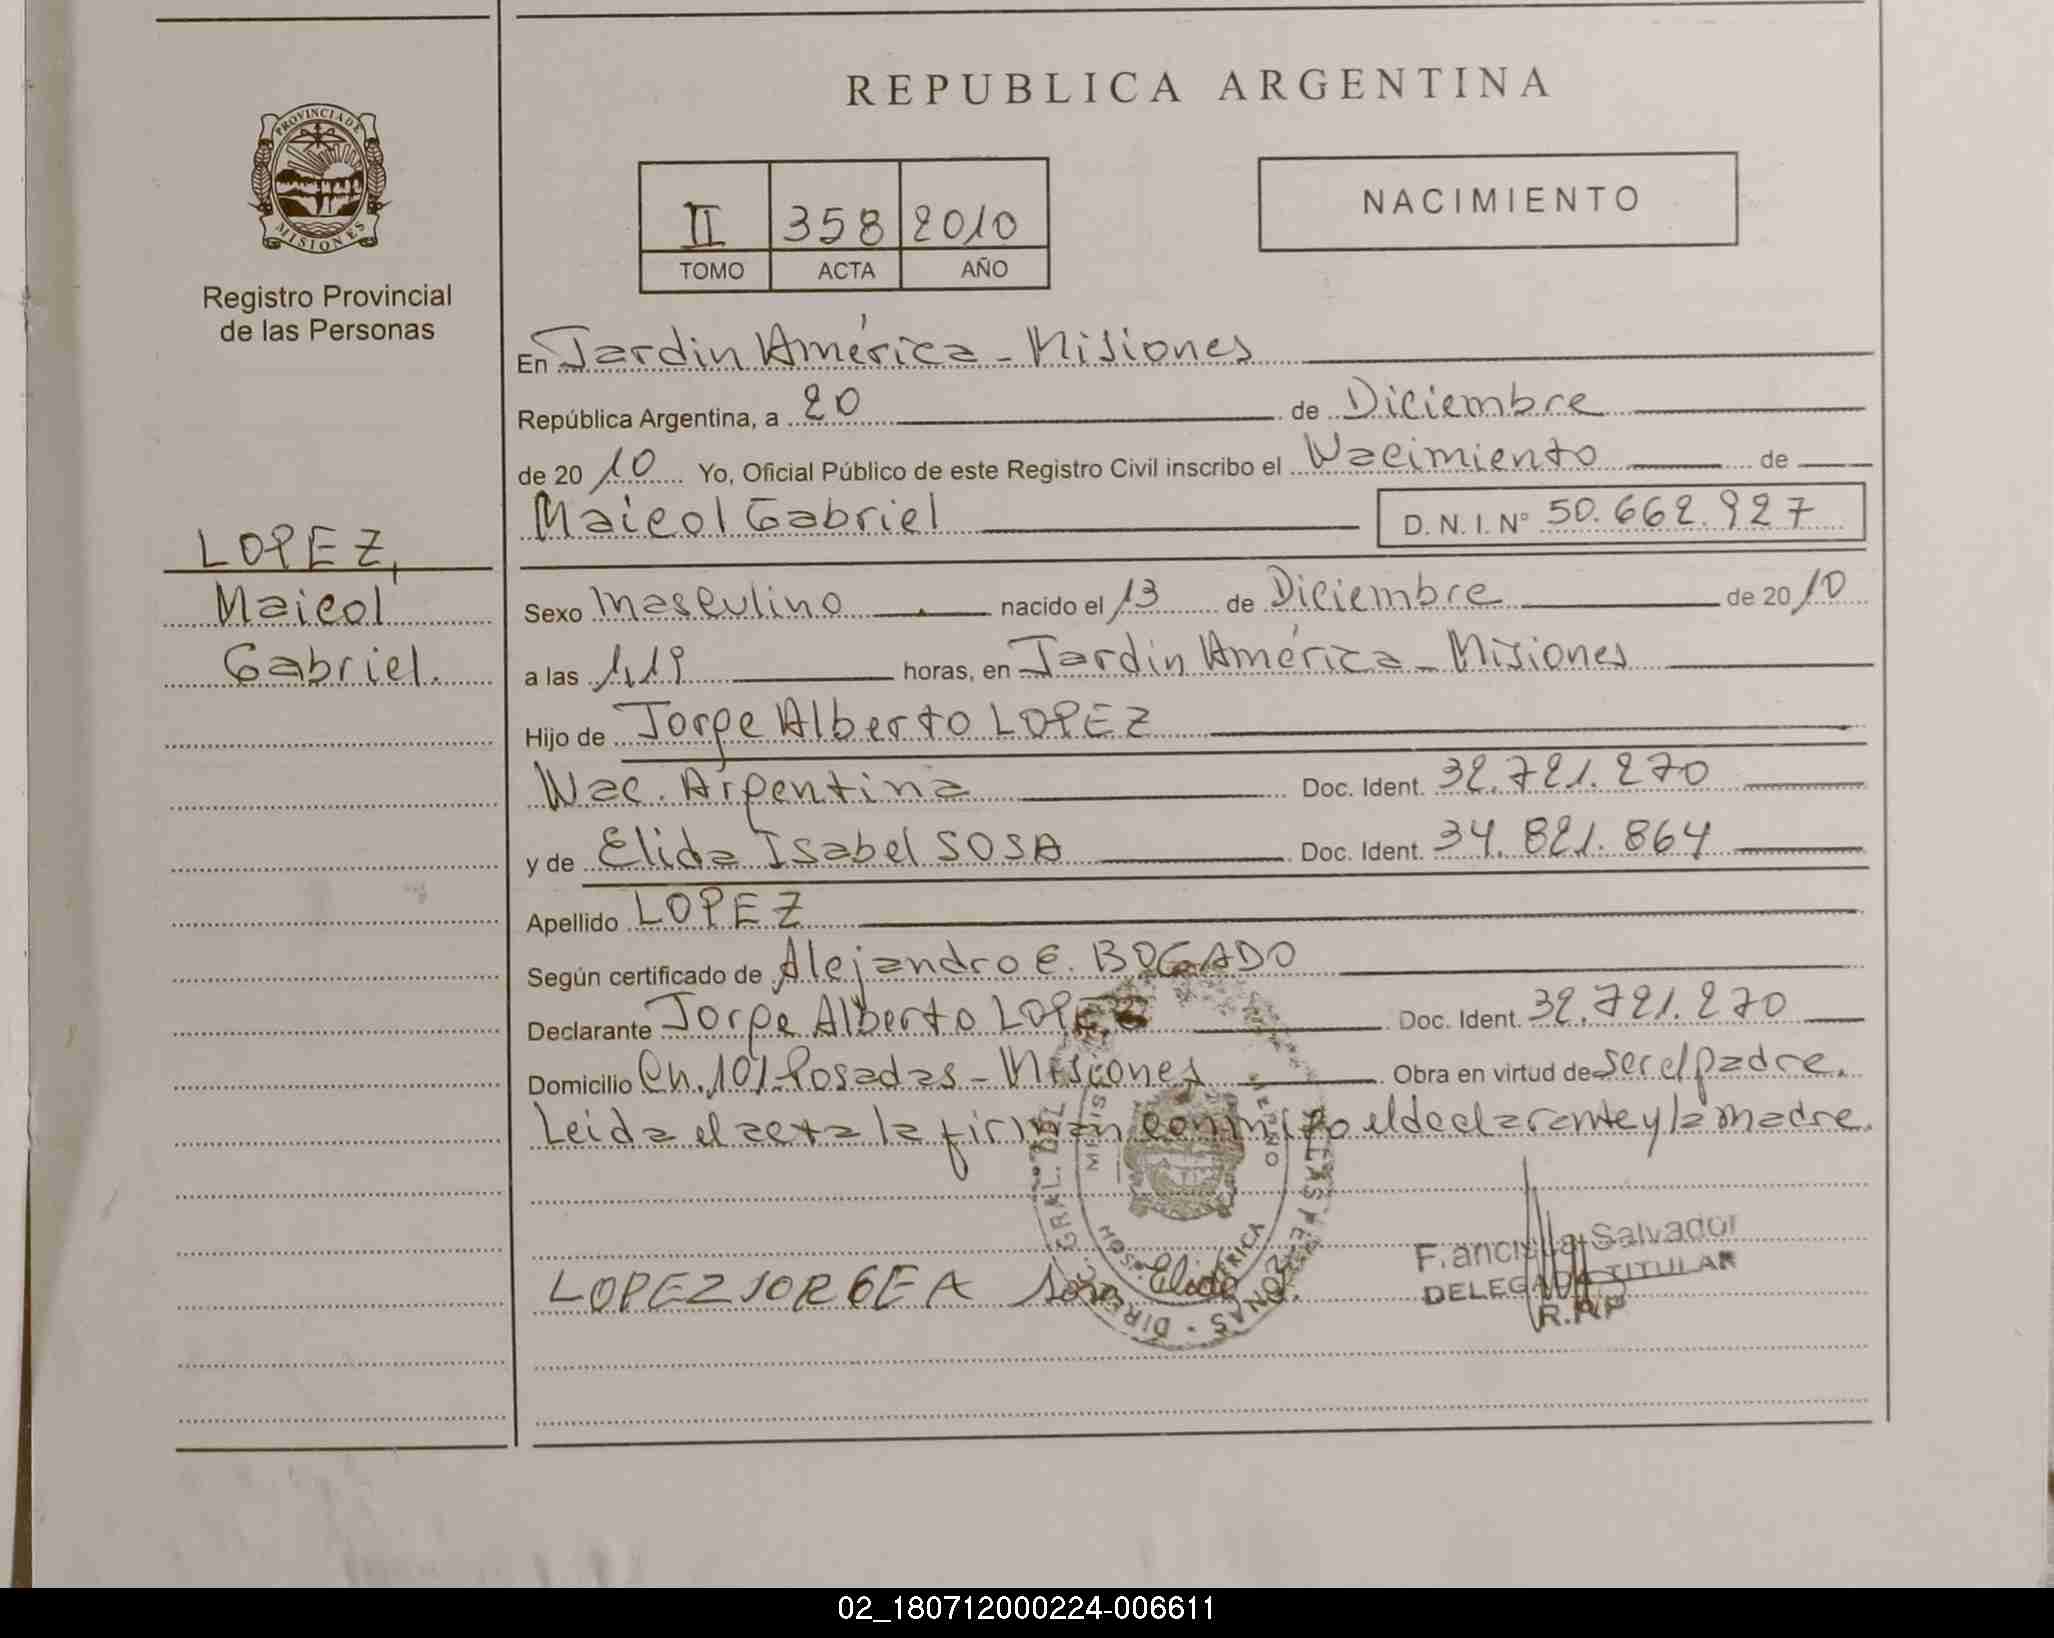 REPUBLICA ARGENTINA
PROVINCIA DE
MISIONES
Registro Provincial
de las Personas
II 358 2010
TOMO ACTA AÑO
NACIMIENTO
En Jardin América - Misiones
República Argentina, a 20 de Diciembre
de 20 10 Yo, Oficial Público de este Registro Civil inscribo el Nacimiento de
Maicol Gabriel D. N. I. N° 50.662.927
LOPEZ,
Maicol
Gabriel.
Sexo masculino nacido el 13 de Diciembre de 20 10
a las 1,19 horas, en Jardin América - Misiones
Hijo de Jorge Alberto LOPEZ
Nac. Argentina Doc. Ident. 32.721.270
y de Elida Isabel SOSA Doc. Ident. 34.821.864
Apellido LOPEZ
Según certificado de Alejandro E. BOGADO
Declarante Jorge Alberto LOPEZ Doc. Ident. 32.721.270
Domicilio Ch. 101 Posadas - Misiones Obra en virtud de ser el padre.
Leida el acta la firman conmigo el declarante y la madre.
LOPEZ JORGE A Sosa Elida
Salvador
DELEGADA TITULAR
R.P.P
02_180712000224-006611